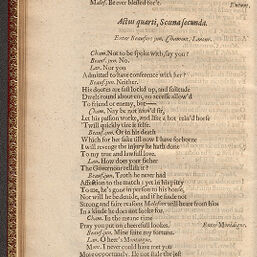 Malef. Be ever blessed for't. Exeunt.
Actus quarti, Scæna secunda.
Enter Beaufort jun, Chamont, Lanour.
Cham. Not to be spoke with, say you?
Beauf. jun. No.
Lan. Nor you
Admitted to have conference with her?
Beauf. jun. Neither.
His doores are fast lock'd up, and solitude
Dwels round about 'em, no accesse allow'd
To friend or enemy, but—
Cham. Nay be not mov'd sir,
Let his passion worke, and like a hot reine'd horse
'Twill quickly tire it selfe.
Beauf. jun. Or in his death
Which for her sake till now I have forborne
I will revenge the injury he hath done
To my true and lawfull love.
Lan. How does your father
The Governour rellish it?
Beauf. jun. Troth he never had
Affection to the match; yet in his pity
To me, he's gone in person to his house,
Nor will he be denide, and if he finde not
Strong and faire reasons Malefort will heare from him
In a kinde he does not looke for.
Cham. In the meane time
Pray you put on cheerfull lookes. Enter Montaigne.
Beauf. jun. Mine suite my fortune.
Lan. O here's Montaigne.
Mont. I never could have met you
More opportunely. Ile not stale the jest